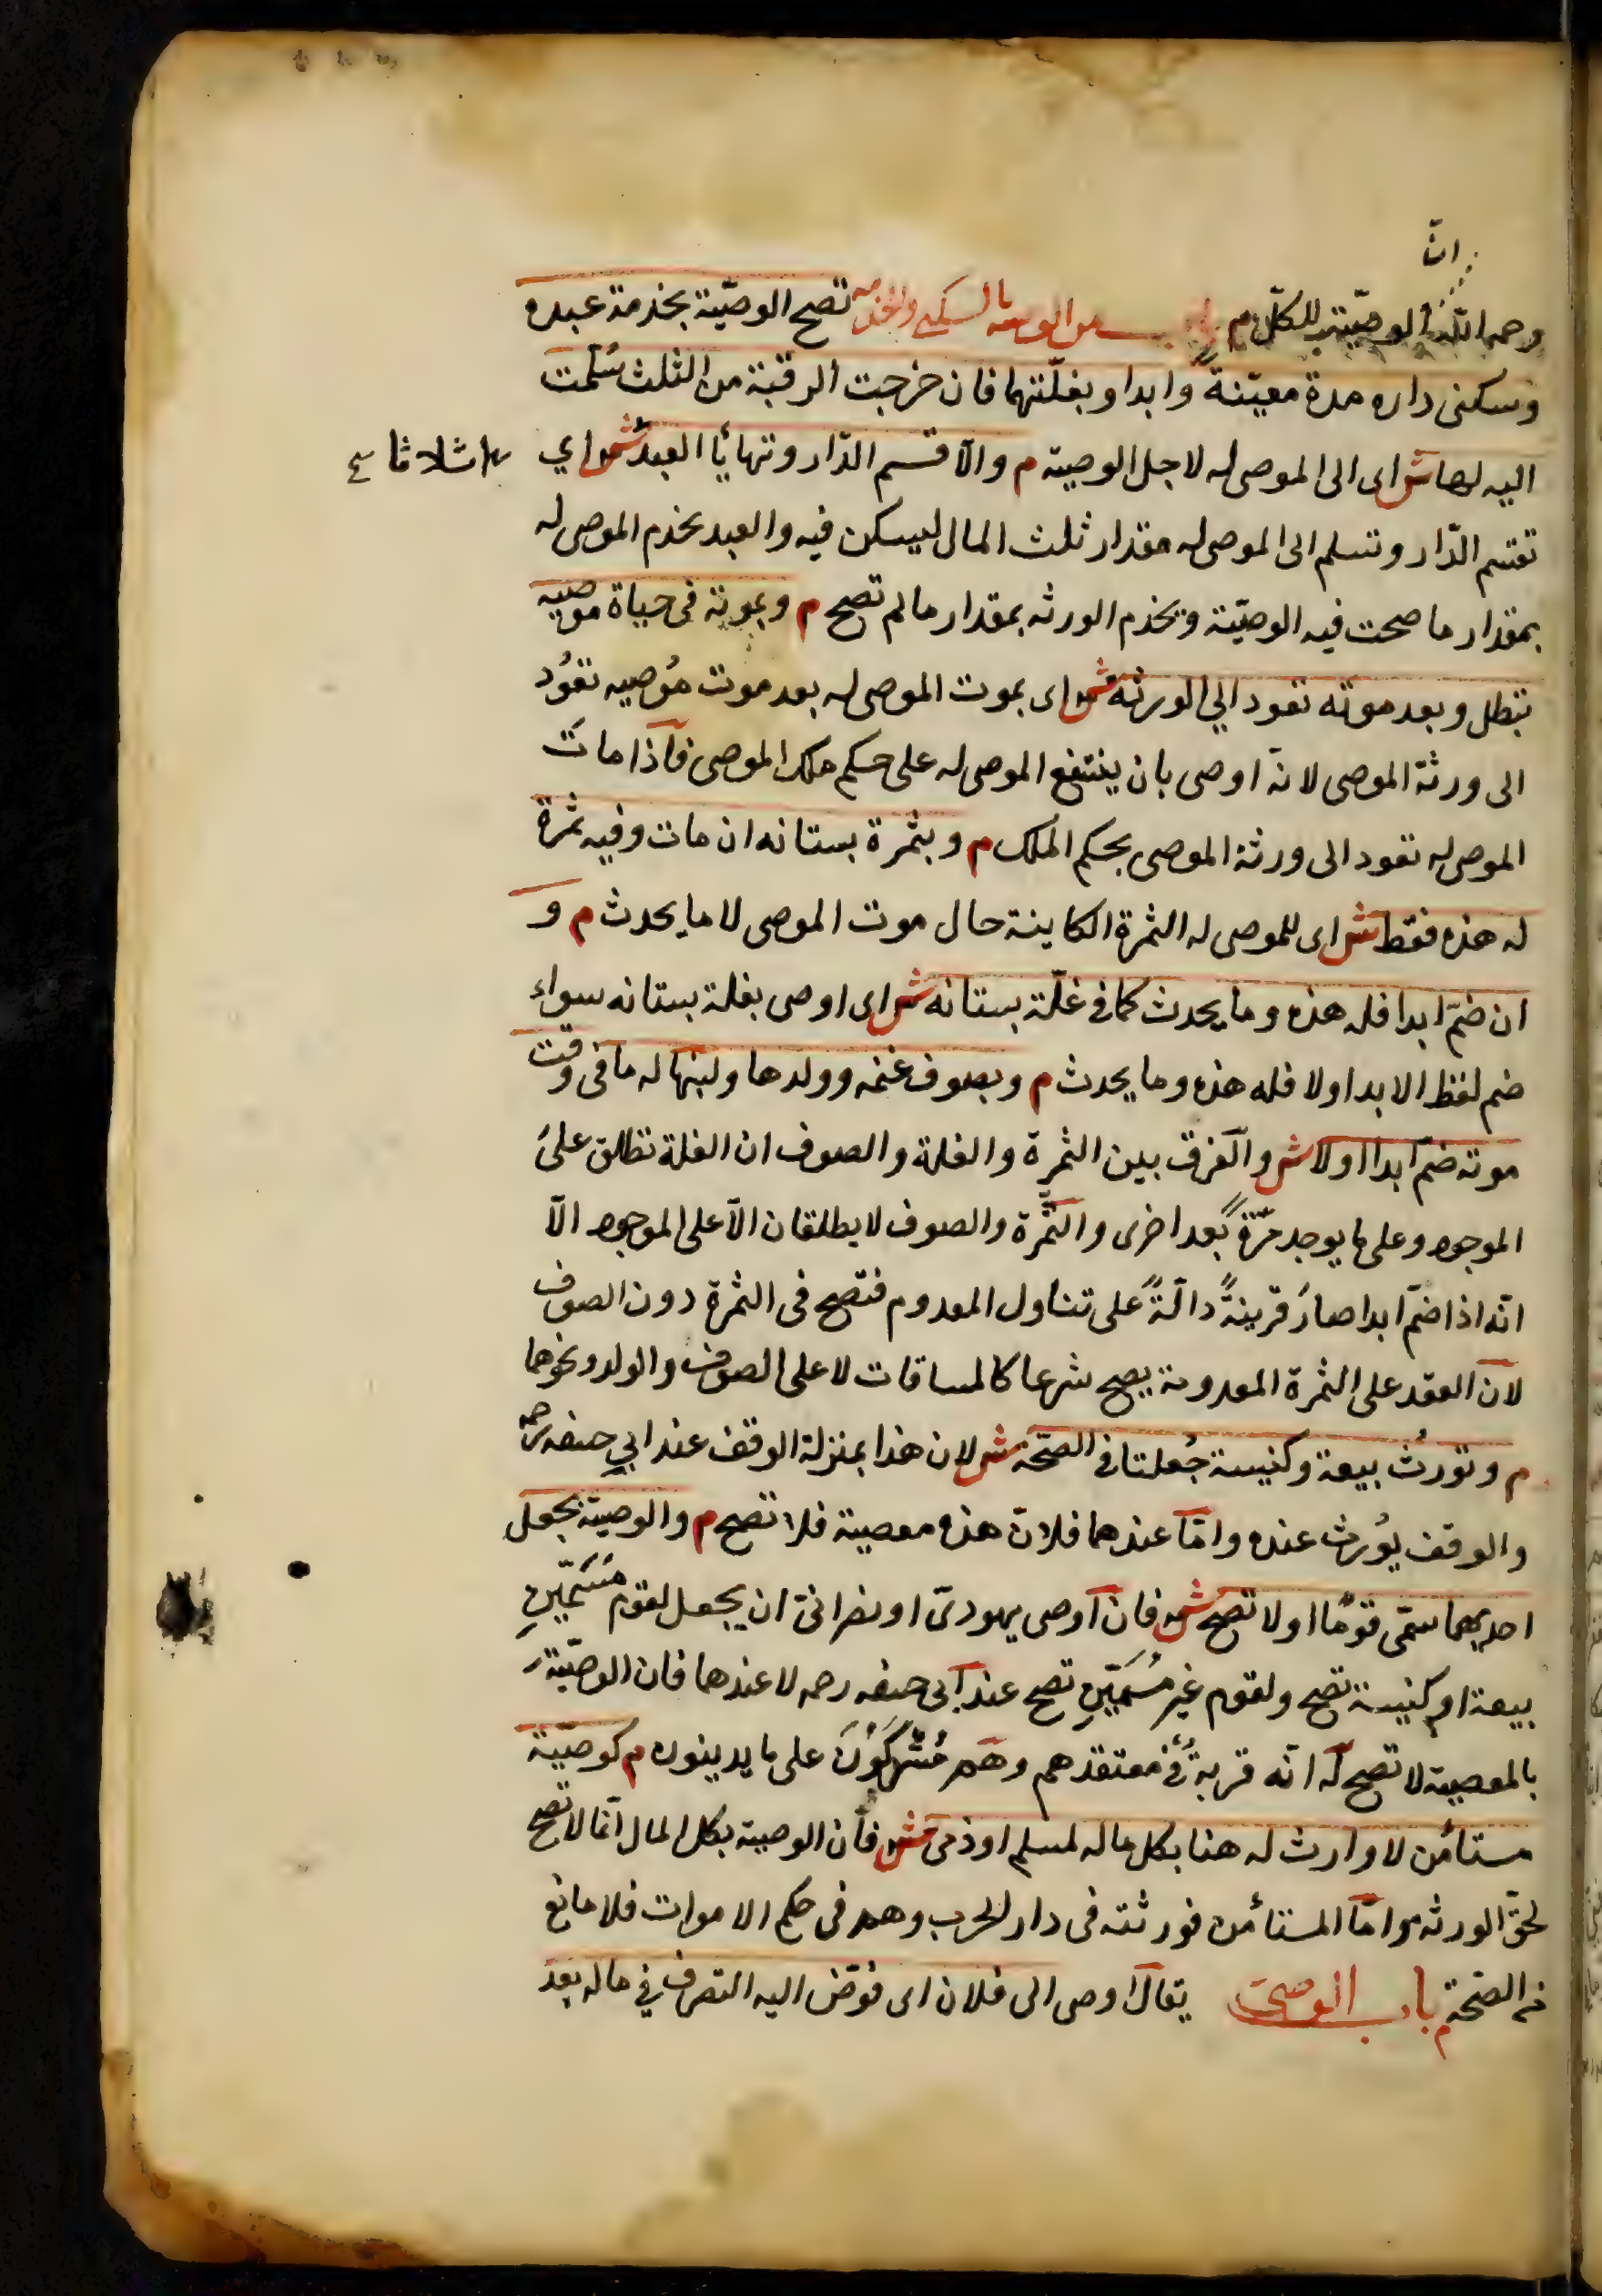 انّ
رحمه اللّه الوصيّة للكلّ م باب من الوصية بالسكنى والخدمة تصح الوصيّة بخدمة عبده
وسكنى داره مدة معيّنة وابدا وبغلّتهما فان خرجت الرقبة من الثلث سُلّمت
اليه لها ش اى الى الموصى له لاجل الوصية م والّا قسم الدّار وتهايُا العبد ش اي
اثلاثا صح
تقسّم الدّار وتسلم الى الموصى له مقدار ثلث المال ليسكن فيه والعبد يخدم الموصى له
بمقدار ما صحت فيه الوصيّة ويخدم الورثه بمقدار ما لم تصح م وبموته فى حياة موصيه
تبطل وبعد موته تعود الي الورثة ش اى بموت الموصى له بعد موت مُوصيه تعوُد
الى ورثة الموصى لانه اوصى بان ينتفع الموصى له على حكم ملك الموصى فاذا مات
الموصى له تعود الى ورثة الموصى بحكم الملك م وبثمرة بستانه ان مات وفيه ثمرة
له هذه فقط ش اى للموصى له الثمرة الكاينة حال موت الموصى لا ما يحدث م و
ان ضمّ ابدا فله هذه وما يحدث كما في غلّة بستانه ش اى اوصى بغلة بستانه سواء
ضم لفظ الابد اولا فله هذه وما يحدث م وبصوف غنمه وولدها ولبنها له ما فى وقت
موته ضمّ ابدا اولا ش والفرق بين الثمرة والغلة والصوف ان الغلة تطلق على
الموجود وعلى ما يوجد مرّةً بعد اخرى والثمرة والصوف لا يطلقان الّا على الموجود الّا
انّه اذا ضمّ ابدا صار قرينةً دالّةً على تناول المعدوم فتصح فى الثمرة دون الصوف
لان العقد على الثمرة المعدومة يصح شرعا كالمساقات لا على الصوف والولد ونحوهما
م وتورث بيعة وكنيسة جُعلتا في الصحّة ش لان هذا بمنزلة الوقف عند ابي حنيفه رحمه
والوقف يوُرث عنده وامّا عندهما فلانّ هذه معصية فلا تصح م والوصية بجعل
احديهما سمّى قومًا اولا تصح ش فان اوصى يهودىّ او نصرانىّ ان يجعل لقوم مُسَمّينِ
بيعة او كنيسة تصح ولقوم غير مُسَمّينِ تصح عند ابى حنيفه رحمه لا عندهما فان الوصيّة
بالمعصية لا تصح له انّه قربةٌ في معتقدهم وهم مُتْرَكوُنَ على ما يدينون م كوصيّة
مستأمن لا وارث له هنا بكل ماله لمسلم او ذمى ش فان الوصية بكل المال انّما لا تصح
لحقّ الورثه وامّا المستأمن فورثته فى دار الحرب وهم فى حكم الاموات فلا مانع
من الصّحّة م باب الوصى يقال اوصى الى فلان اى فوّض اليه التصرف في ماله بعد